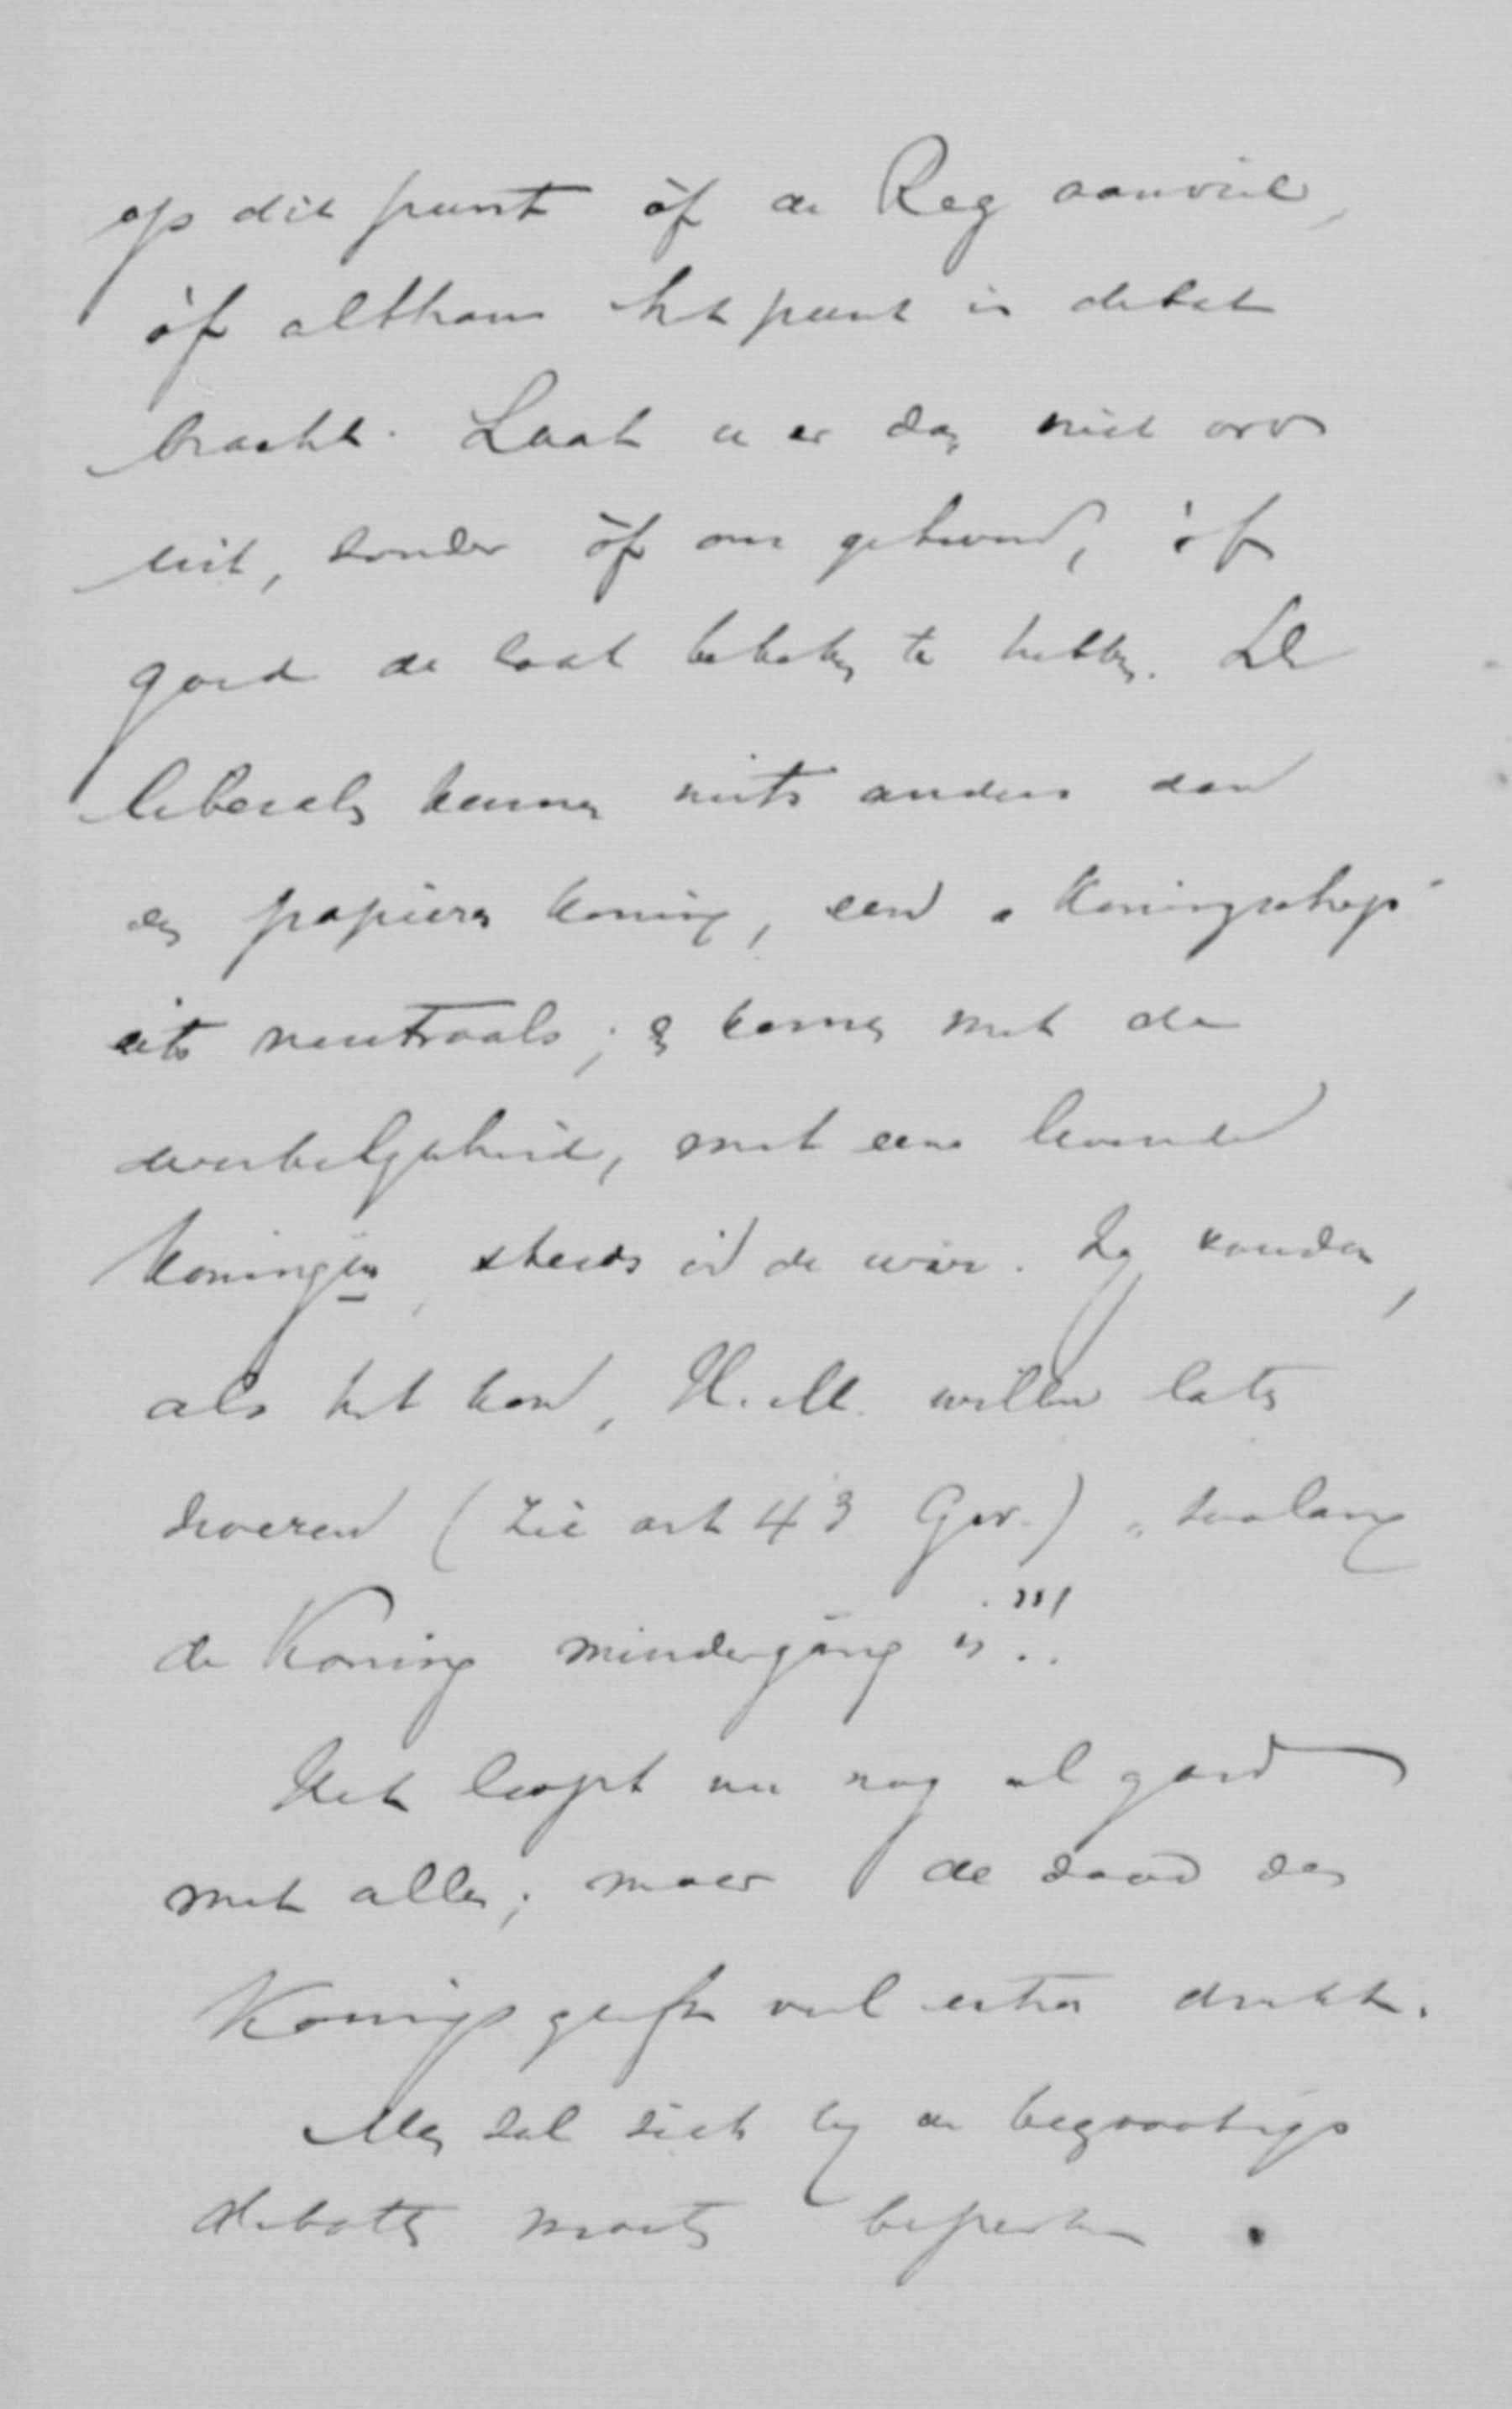 op dit punt òf de Reg aanviel,
òf althans het punt in debat
bracht. Laat u er dan niet over
uit, zonder òf ons gehoord, òf
goed de zaak bekeken te hebben. De
liberalen kennen niets anders dan
een papieren koning, een "Koningschap"
iets neutraals; en komen met de
werkelijkheid, met eene levende
Koningin, steeds in de war. Zij zouden,
als het kon, H.M. willen laten
zweren (zie art 43 Gw.) "zoolang
de Koning minderjarig is"!!!
Het loopt nu nog al goed
met alles; maar de dood des
Konings geeft veel extra drukte.
Men zal zich bij de begrootings
debatten moeten beperken.